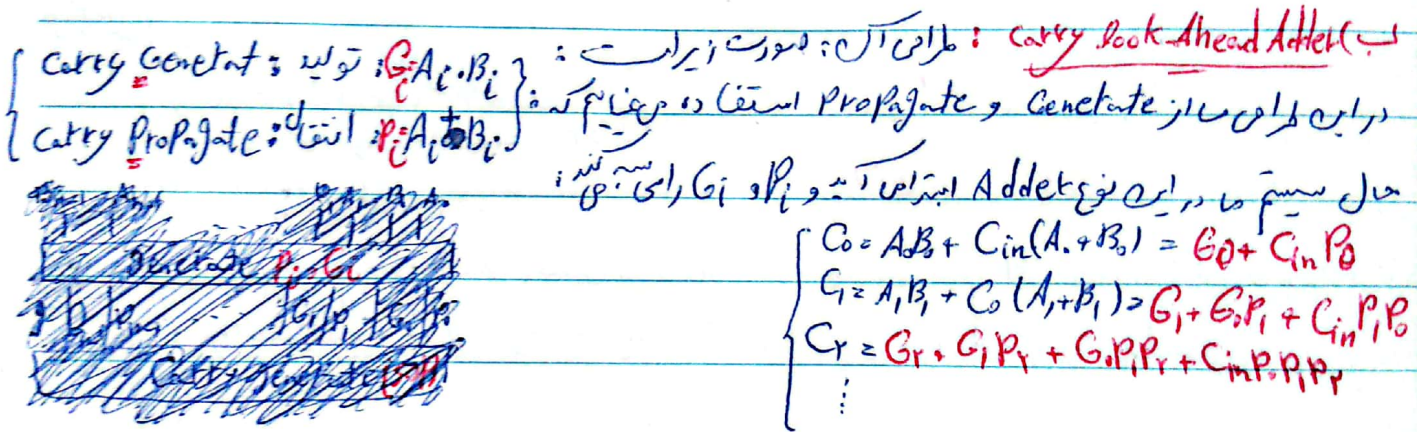 ب) Carry Look Ahead Adder : طراحی آن به صورت زیر است :
در این طراحی ما از Generate و Propagate استفاده می‌نماییم که :
{ Carry Generat : تولید : Gi = Ai.Bi
Carry Propagate : انتقال : Pi = Ai + Bi }
حال سیستم ما در این نوع Adder ابتدا می‌آید و Pi و Gi را محاسبه می‌کند :
C0 = A0B0 + Cin(A0+B0) = G0 + Cin P0
C1 = A1B1 + C0(A1+B1) = G1 + G0P1 + Cin P1P0
C۲ = G۲ + G1P۲ + G0P1P۲ + Cin P0P1P۲
⋮
Generate Pi, Gi
Carry generate